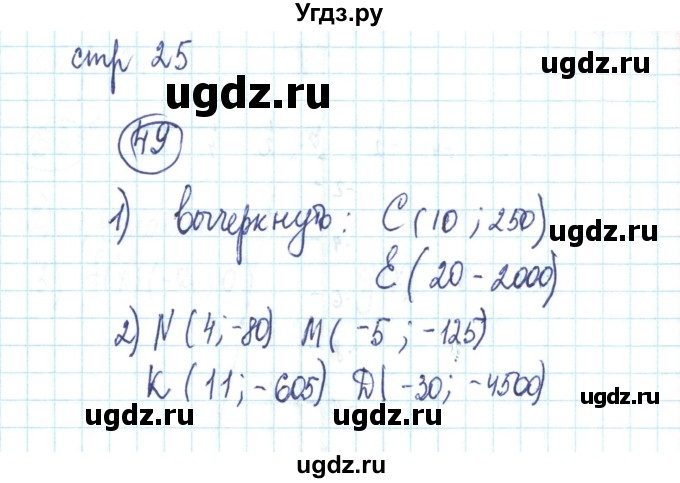 Угдз.ру
стр 25
ugdz.ru
ugdz.ru
49
1) вычеркнуть: C(10 ; 250)
ugdz.ru
E(20 - 2000)
2) N(4; -80) M(-5 ; -125)
ugdz.ru
K(11; -605) Д(-30; -4500)
ugdz.ru
ugdz.ru
ugdz.ru